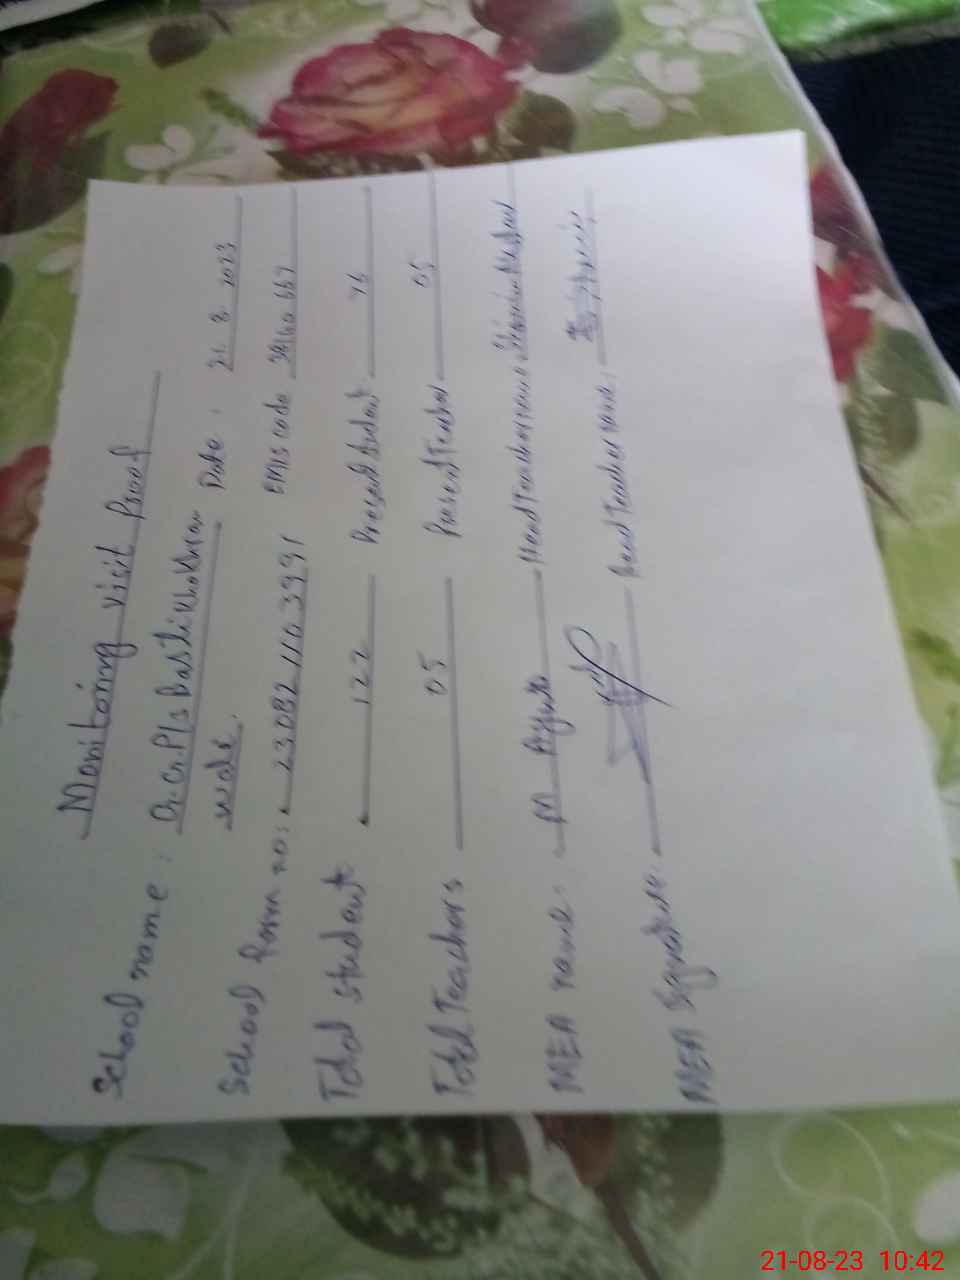 Monitoring visit Proof
School name : G.G.P/s Basti Date : 21. 8. 2023
wali.
School form no: 23082110 3991 EMIS code
Total student 122 Present student 76
Total Teachers 05 Present Teacher 05
MEA name : M Head Teacher name
MEA Signature: Head Teacher name:
21-08-23 10:42